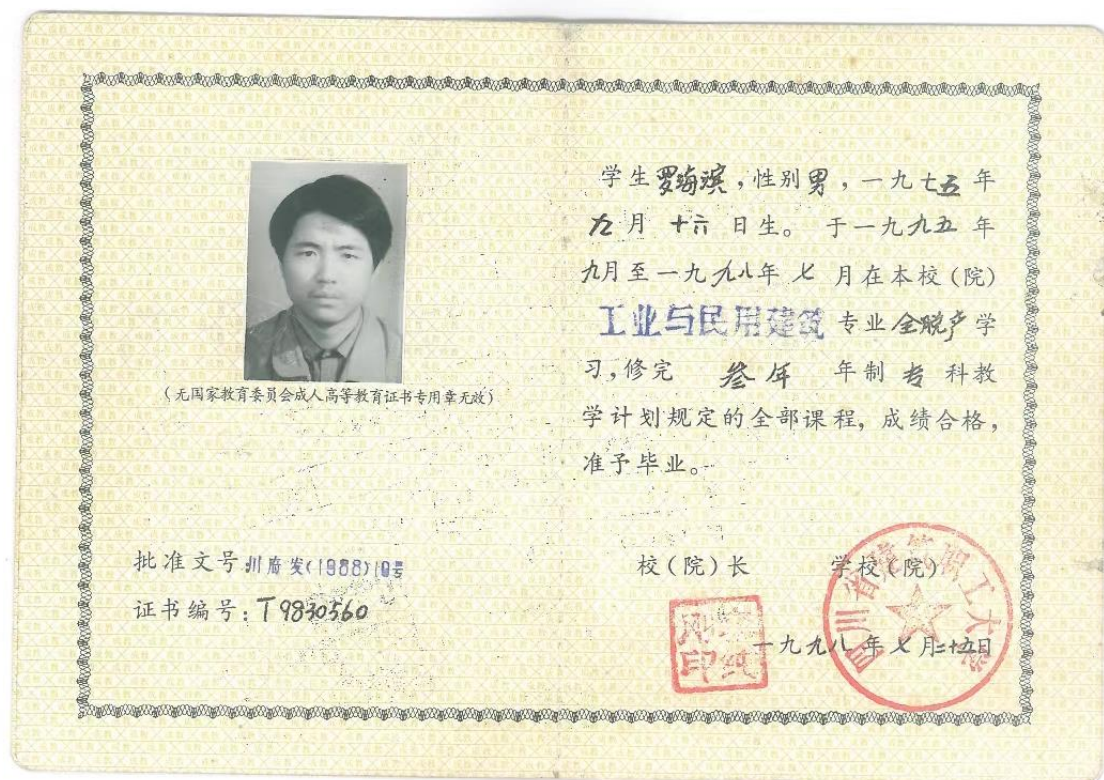 (无国家教育委员会成人高等教育证书专用章无效)
批准文号:川府发(1988)10号
证书编号:T9830560
学生罗海滨,性别男,一九七五年
九月十六日生。于一九九五年
九月至一九九八年七月在本校(院)
工业与民用建筑专业全脱产学
习,修完叁年年制专科教
学计划规定的全部课程,成绩合格,
准予毕业。
校(院)长 学校(院)
四川省建筑职工大学
一九九八年七月二十五日